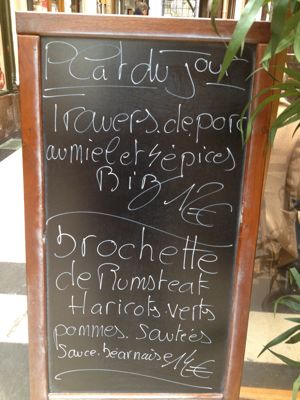 Plat du jour
Travers de porc
au miel et 4 épices
12€
brochette
de Rumsteat
Haricots verts
pommes sautées
sauce béarnaise 14€